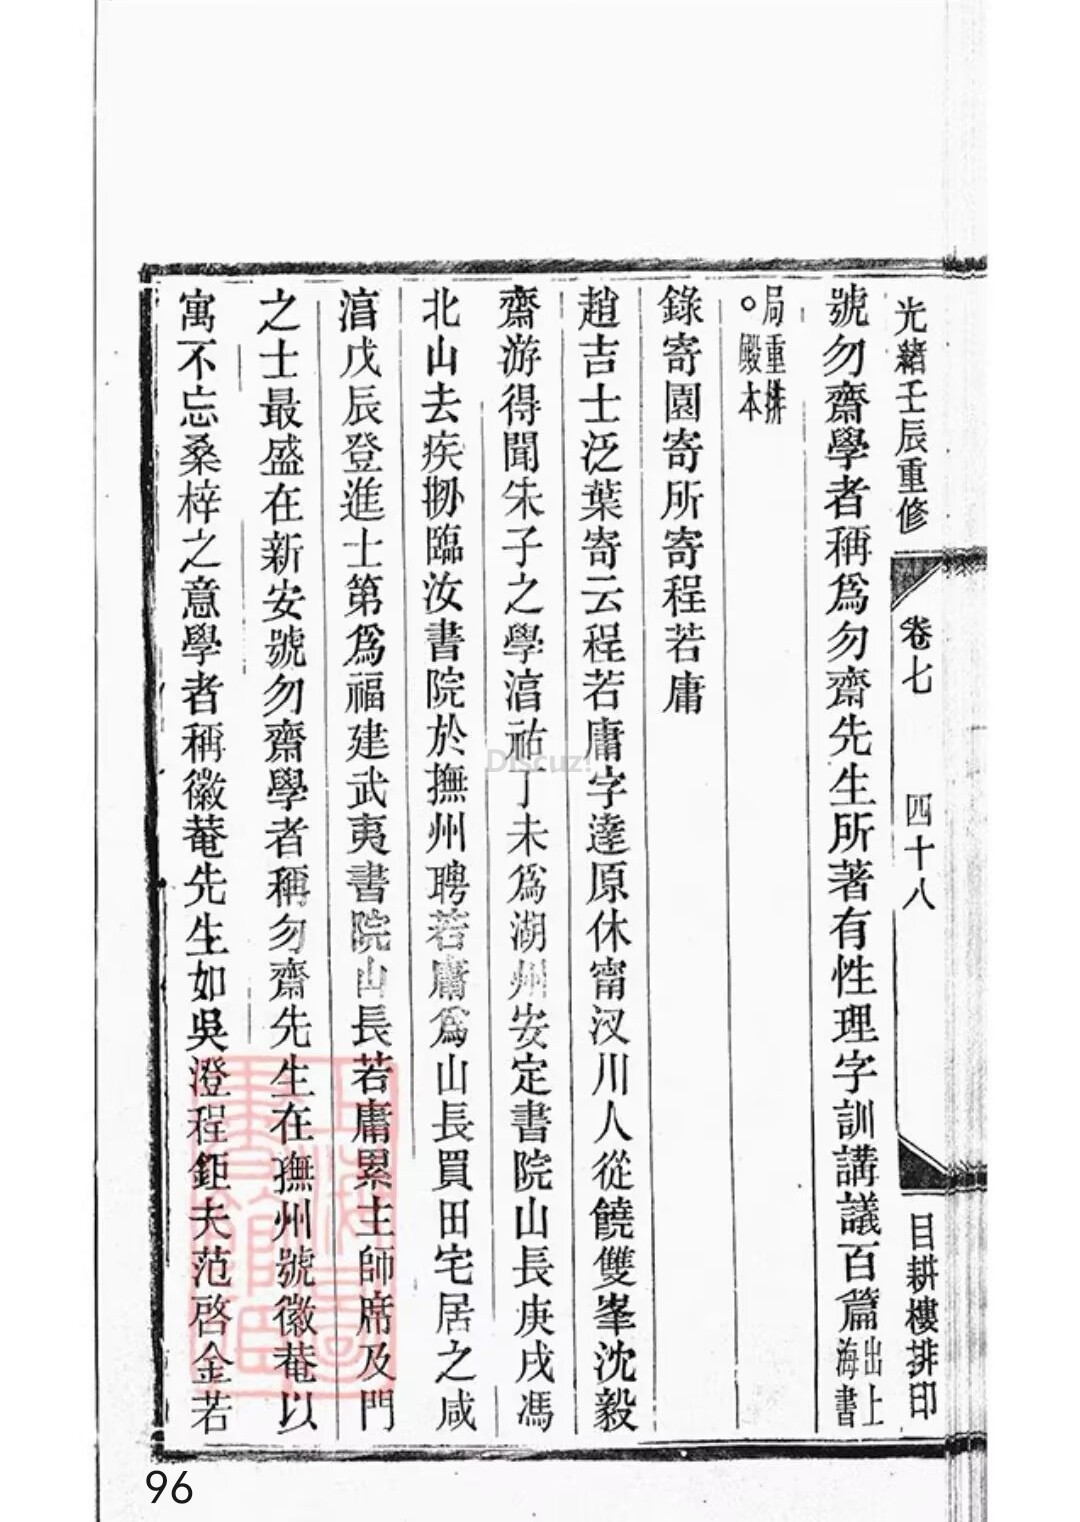 光緒壬辰重修 卷七 四十八 目耕樓排印
號勿齋學者稱爲勿齋先生所著有性理字訓講議百篇出上海書
局重排殿本
錄寄園寄所寄程若庸
趙吉士泛葉寄云程若庸字逹原休甯汊川人從饒雙峯沈毅
齋游得聞朱子之學湻祐丁未爲湖州安定書院山長庚戌馮
北山去疾刱臨汝書院於撫州聘若庸爲山長買田宅居之咸
湻戊辰登進士第爲福建武夷書院山長若庸累主師席及門
之士最盛在新安號勿齋學者稱勿齋先生在撫州號徽菴以
寓不忘桑梓之意學者稱徽菴先生如吳澄程鉅夫范啓金若
上海圖書館藏
Discuz!
96